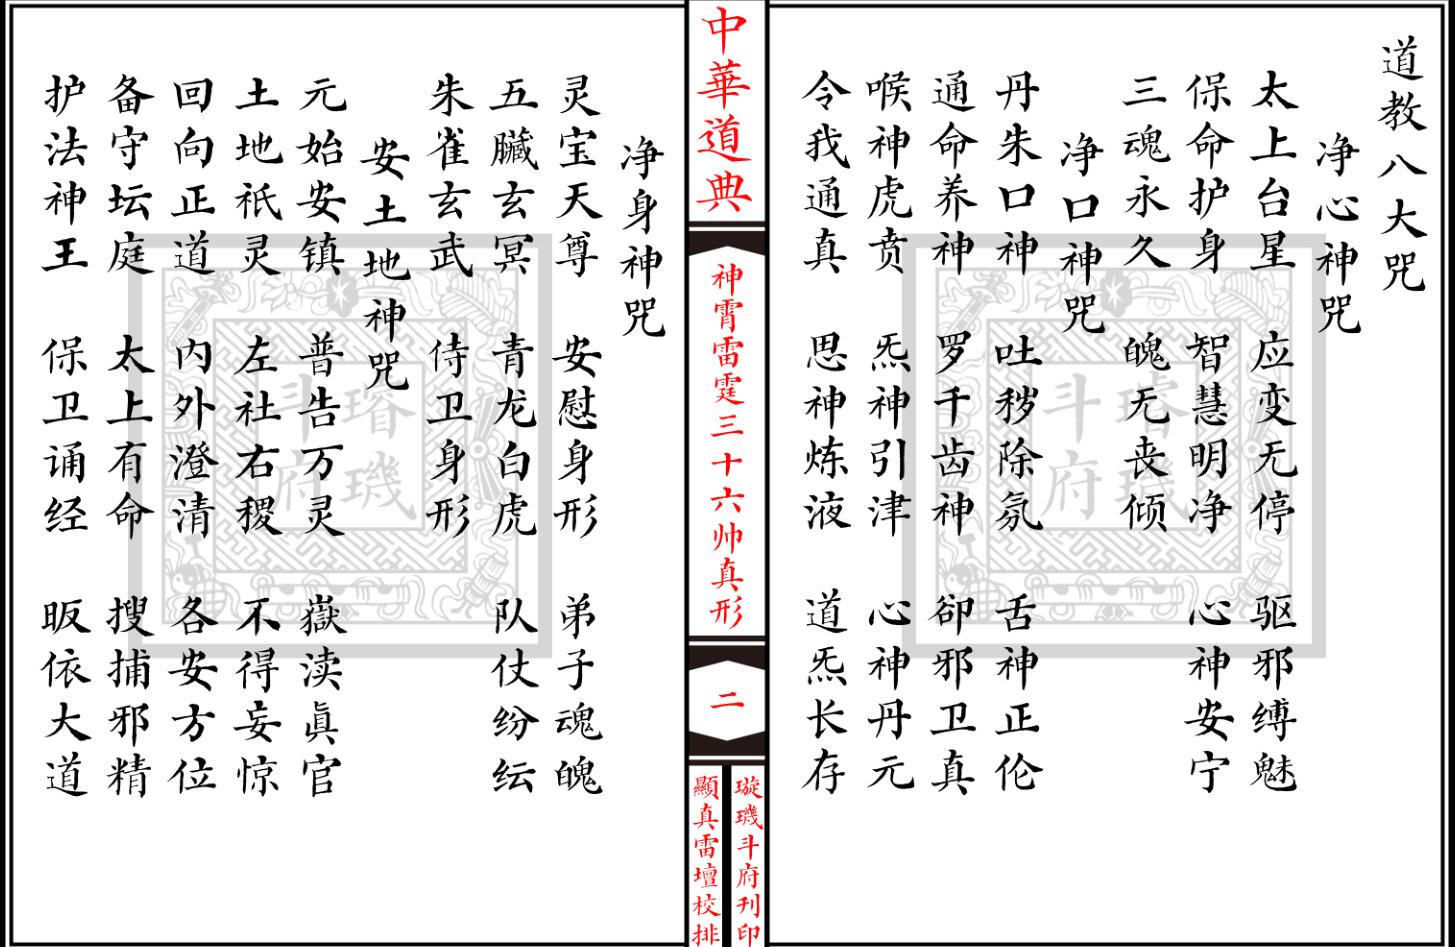 道教八大咒
净心神咒
太上台星 应变无停 驱邪缚魅
保命护身 智慧明净 心神安宁
三魂永久 魄无丧倾
净口神咒
丹朱口神 吐秽除氛 舌神正伦
通命养神 罗千齿神 卻邪卫真
喉神虎贲 炁神引津 心神丹元
令我通真 思神炼液 道炁长存
中華道典
神霄雷霆三十六帅真形
二
璇璣斗府刊印
顯真雷壇校排
净身神咒
灵宝天尊 安慰身形 弟子魂魄
五臟玄冥 青龙白虎 队仗纷纭
朱雀玄武 侍卫身形
安土地神咒
元始安镇 普告万灵 嶽渎眞官
土地祇灵 左社右稷 不得妄惊
回向正道 内外澄清 各安方位
备守坛庭 太上有命 搜捕邪精
护法神王 保卫诵经 皈依大道
璿璣
斗府
璿璣
斗府